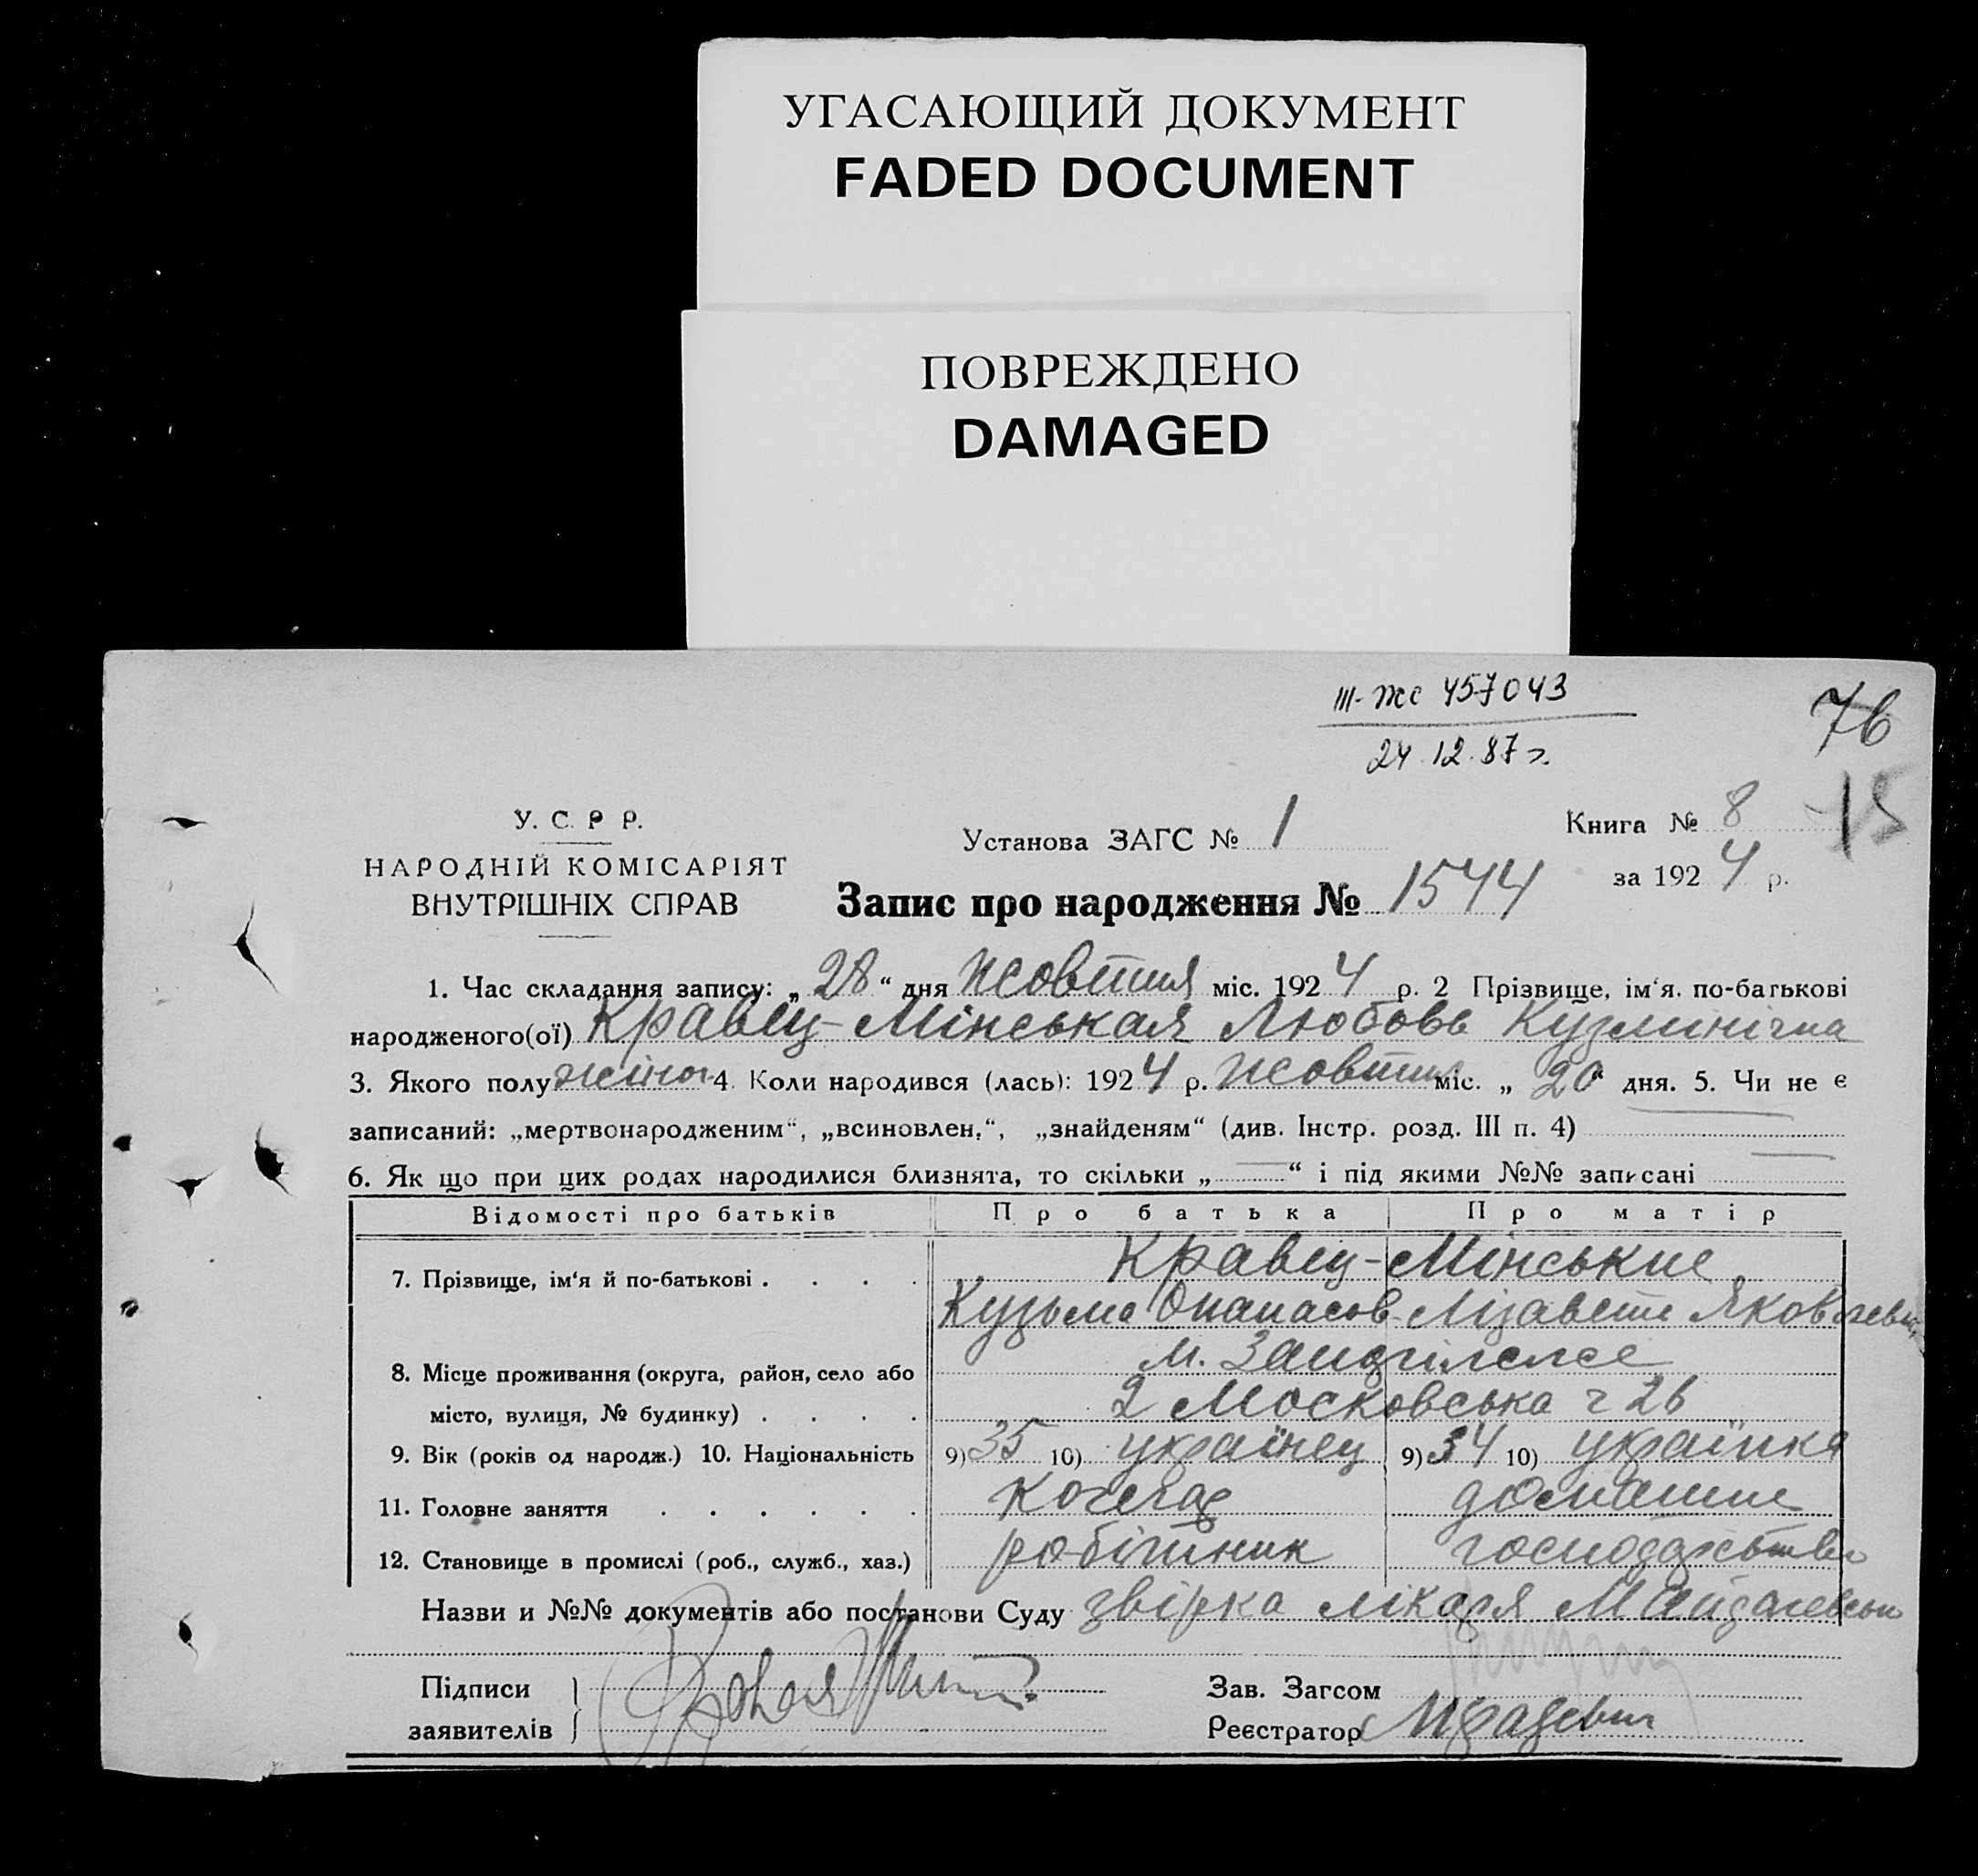 УГАСАЮЩИЙ ДОКУМЕНТ
FADED DOCUMENT
ПОВРЕЖДЕНО
DAMAGED
III-ЖС 457043
24.12.87 г.
76
15
У. С. Р. Р.
НАРОДНІЙ КОМІСАРІЯТ
ВНУТРІШНІХ СПРАВ
Установа ЗАГС № 1
Книга № 8
за 1924 р.
Запис про народження № 1544
1. Час складання запису: „28“ дня жовтня міс. 1924 р. 2 Прізвище, ім‘я, по-батькові
народженого(ої) Кравец-Мінськая Любовь Кузмінічна
3. Якого полу жіноч 4. Коли народився (лась): 1924 р. жовтня міс. „20“ дня. 5. Чи не є
записаний: „мертвонародженим“, „всиновлен.“, „знайденям“ (див. Інстр. розд. III п. 4)
6. Як що при цих родах народилися близнята, то скільки „ “ і під якими №№ записані
Відомості про батьків Про батька Про матір
7. Прізвище, ім‘я й по-батькові . . . . Кравец-Мінськие
Кузьма Опанасов Лізавета Яковлевн
8. Місце проживання (округа, район, село або
місто, вулиця, № будинку) . . . . 2 Московська 26
9. Вік (років од народж.) 10. Національність 9) 35 10) українец 9) 34 10) українка
11. Головне заняття . . . . . . Кочегар домашне
12. Становище в промислі (роб., служб., хаз.) робітник господарьство
Назви и №№ документів або постанови Суду звірка лікаря
Підписи
заявителів
Зав. Загсом
Реєстратор